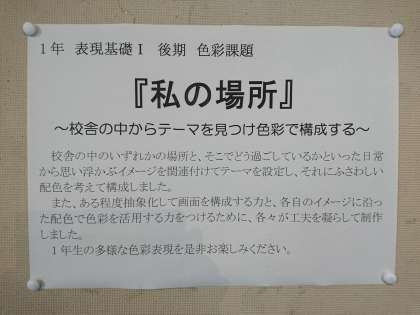 1年 表現基礎Ⅰ 後期 色彩課題
『私の場所』
～校舎の中からテーマを見つけ色彩で構成する～
校舎の中のいずれかの場所と、そこでどう過ごしているかといった日常
から思い浮かぶイメージを関連付けてテーマを設定し、それにふさわしい
配色を考えて構成しました。
また、ある程度抽象化して画面を構成する力と、各自のイメージに沿っ
た配色で色彩を活用する力をつけるために、各々が工夫を凝らして制作
しました。
1年生の多様な色彩表現を是非お楽しみください。